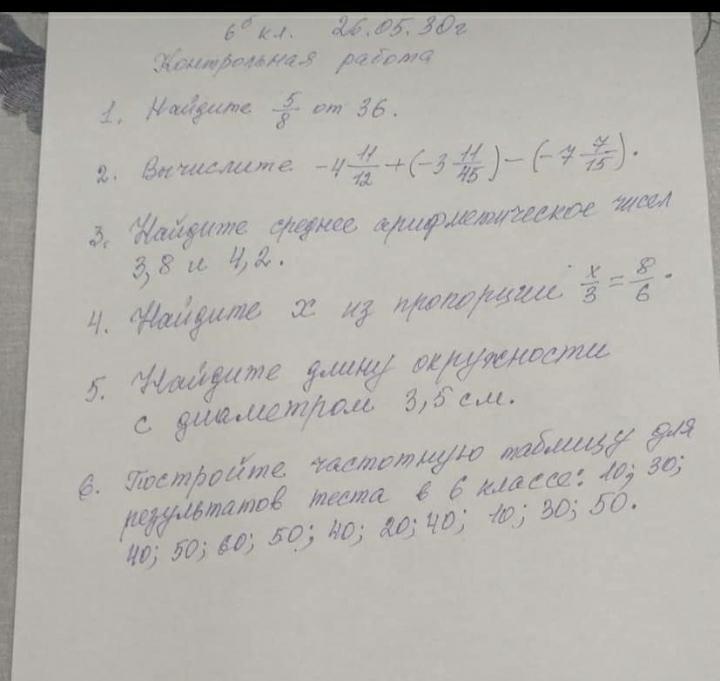 6б кл. 26.05.30г
Контрольная работа
1. Найдите 5/8 от 36.
2. Вычислите -4 11/12 + (-3 11/45) - (-7 7/15).
3. Найдите среднее арифметическое чисел
3,8 и 4,2.
4. Найдите x из пропорции x/3 = 8/6.
5. Найдите длину окружности
с диаметром 3,5 см.
6. Постройте частотную таблицу для
результатов теста в 6 классе: 10; 30;
40; 50; 60; 50; 40; 20; 40; 10; 30; 50.